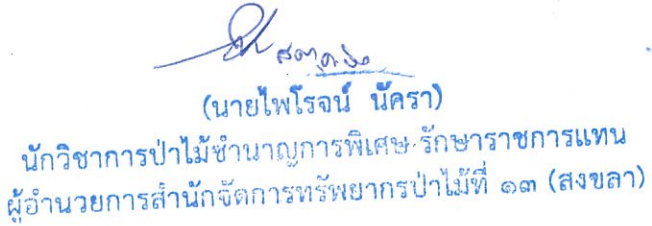 (นายไพโรจน์ นัครา)
นักวิชาการป่าไม้ชำนาญการพิเศษ รักษาราชการแทน
ผู้อำนวยการสำนักจัดการทรัพยากรป่าไม้ที่ ๑๓ (สงขลา)